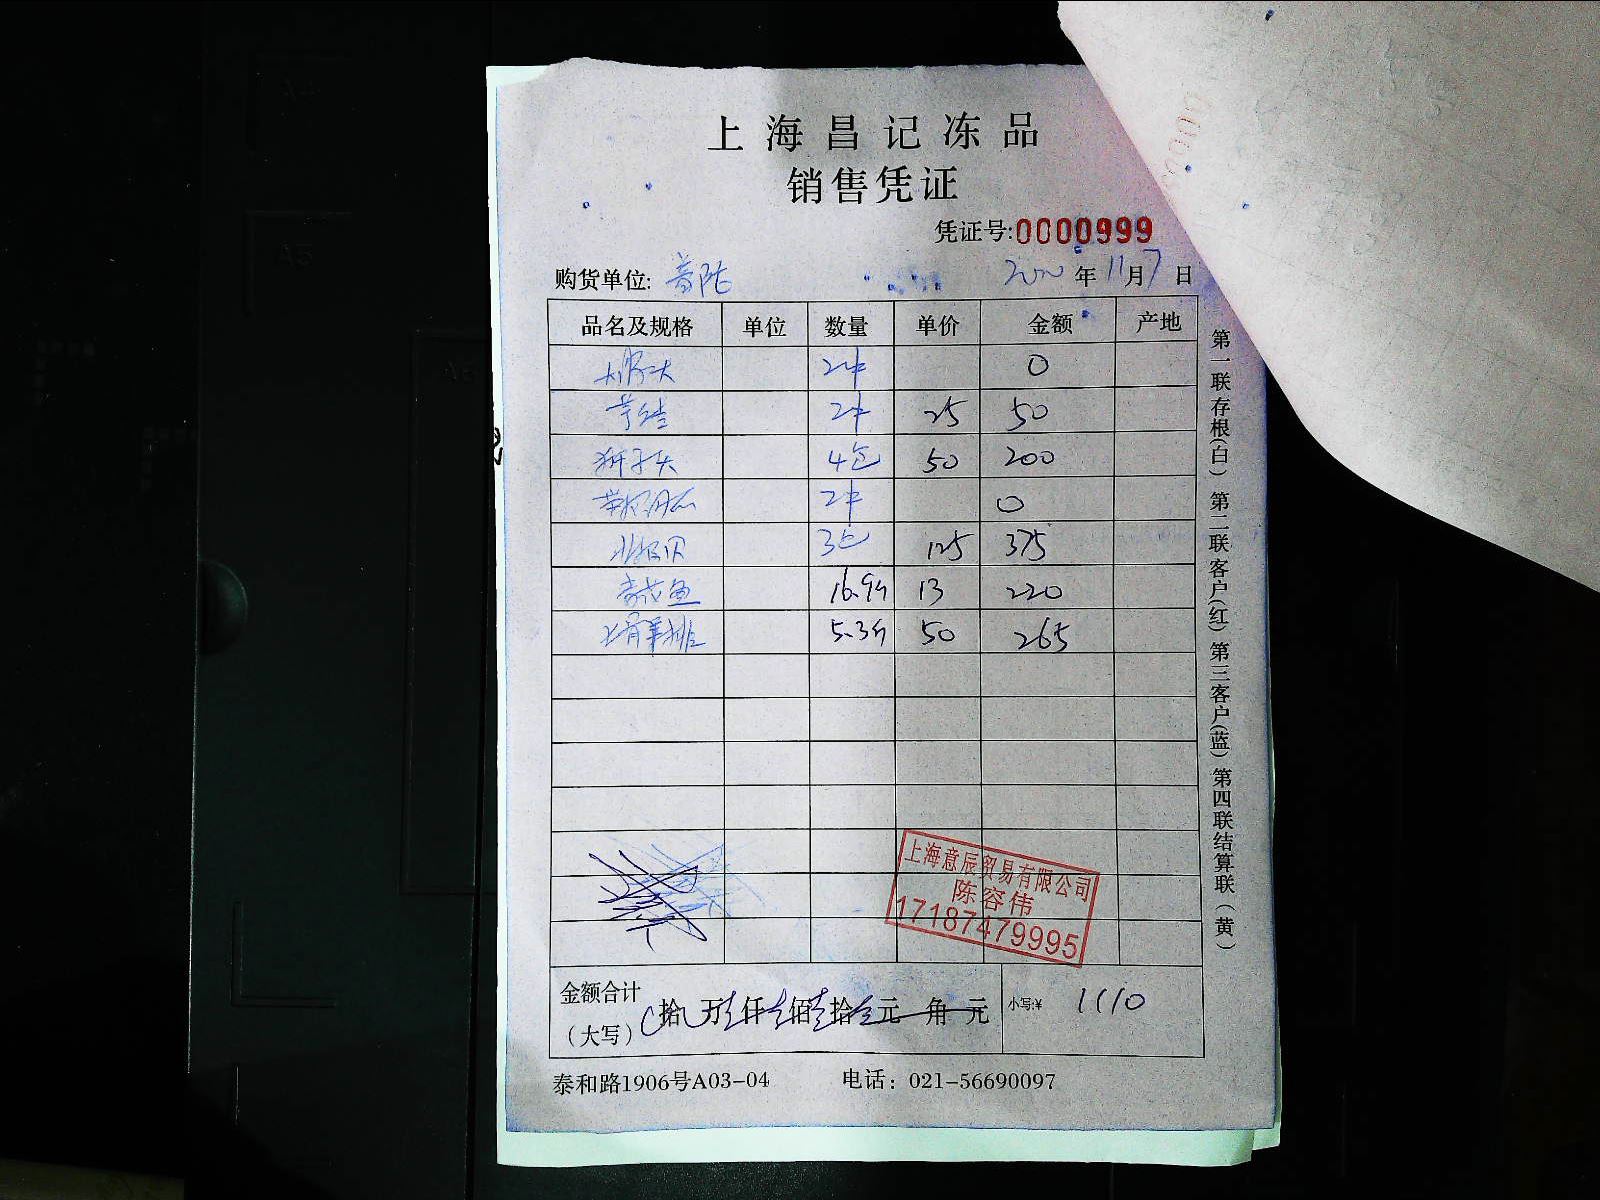 上海昌记冻品
销售凭证
凭证号:0000999
购货单位: 2020年11月7日
品名及规格 单位 数量 单价 金额 产地
2件 0
2件 25 50
狮子头 4包 50 200
2件 0
北极贝 3包 125 375
鱼 16.9斤 13 220
羊排 5.3斤 50 265
上海意辰贸易有限公司
陈容伟
17187479995
金额合计
(大写) 拾 万 仟 佰 拾 元 角 元 小写:¥ 1110
泰和路1906号A03-04 电话: 021-56690097
第一联存根(白) 第二联客户(红) 第三客户(蓝) 第四联结算联(黄)